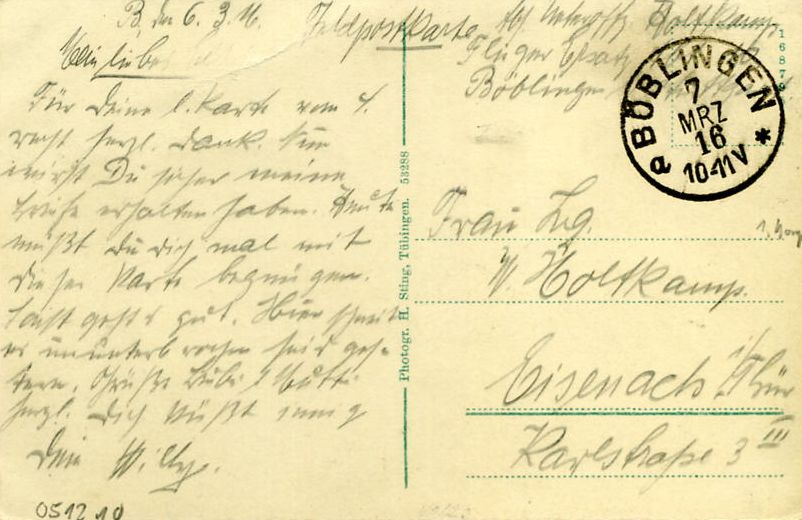 B., den 6. 3. 16.
Mein liebes
Für Deine l. Karte vom 4.
recht herzl. Dank. Nun
wirst Du sicher meine
Briefe erhalten haben. Heute
mußt Du Dich mal mit
dieser Karte begnügen.
Sonst geht's gut. Hier schneit
es ununterbrochen seit ges-
tern. Grüße Bubi & Mutti
herzl. Dich küßt innig
Dein Willy.
051210
Feldpostkarte
Abs. Holtkamp
Flieger Ersatz
Böblingen
16879
BÖBLINGEN
7
MRZ
16
10-11V
a *
Photogr. H. Sting, Tübingen. 53288
Frau
W. Holtkamp.
Eisenach i/Thür
Karlstraße 3 III